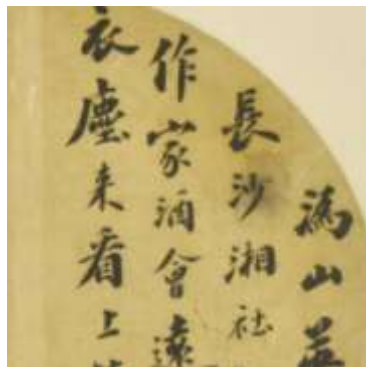 溈山華
長沙湘社
作家酒會遠
衣塵来看上